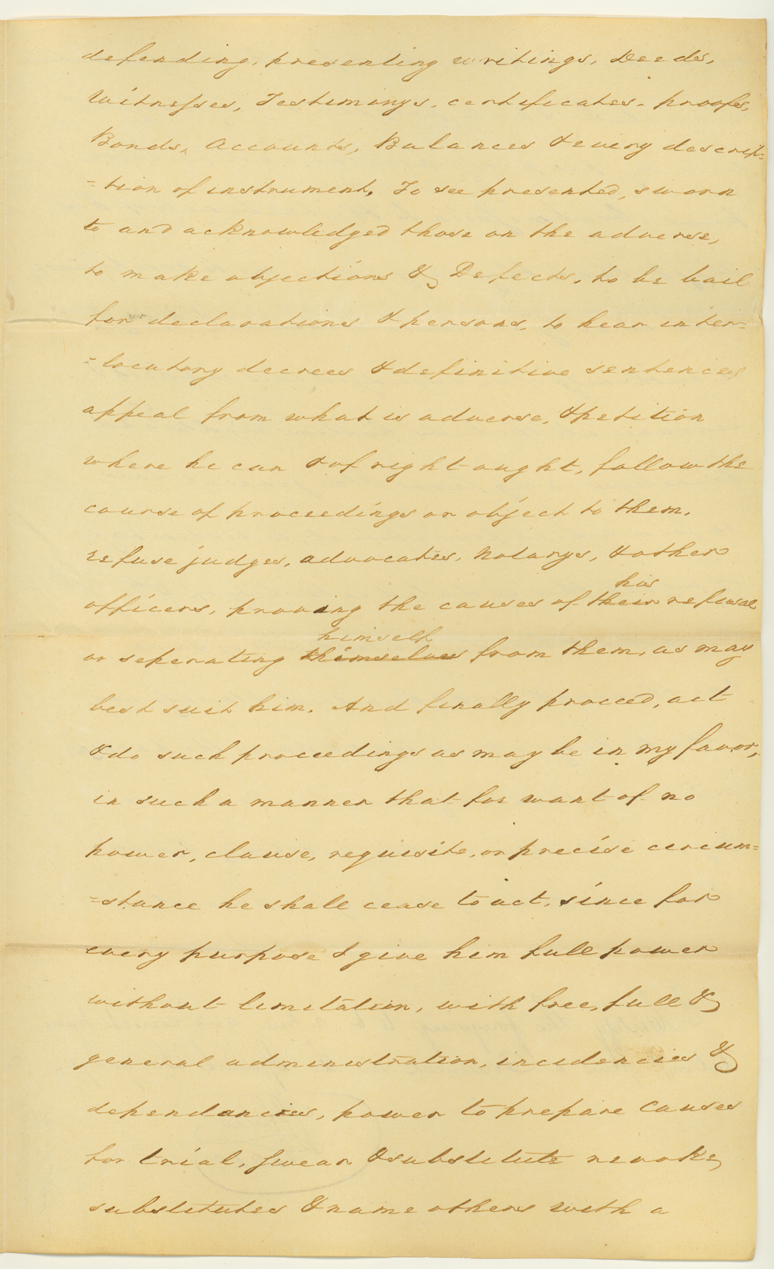 defending, presenting writings, Deeds,
Witnesses, Testimonys, certificates, proofs,
Bonds, Accounts, Balances & every descrip-
=tion of instrument, To see presented, sworn
to and acknowledged those on the adverse,
to make objections & Defects, to be bail
for declarations & persons, to hear inter=
=locutory decrees & definitive sentences
appeal from what is adverse, & petition
where he can & of right ought, follow the
course of proceedings or object to them,
refuse judges, advocates, Notarys, & other
his
officers, proving the causes of their refusal
himself
or seperating themselves from them, as may
best suit him. And finally proceed, act
& do such proceedings as may be in my favor,
in such a manner that for want of no
power, clause, requisite, or precise circum=
=stance he shall cease to act, since for
every purpose I give him full power
without limitation, with free, full &
general administration, incidencies &
dependancies, power to prepare causes
for trial, swear & substitute revoke,
substitutes & name others with a